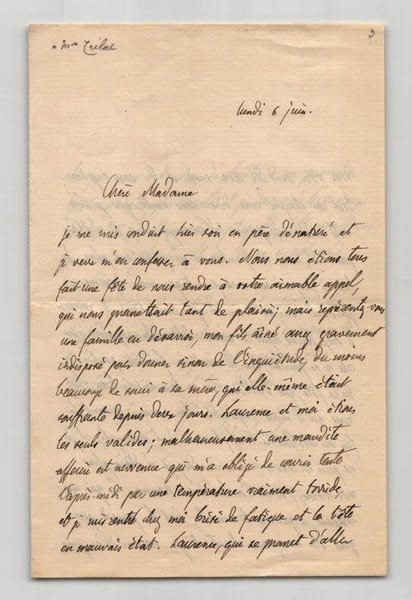 a Mme Trélat
3
lundi 6 juin.
Chère Madame
je me suis conduit hier soir en père dénaturé et
je veux m'en confesser à vous. Nous nous étions tous
fait une fête de nous rendre à votre aimable appel,
qui nous promettait tant de plaisir; mais représentez-vous
une famille en désarroi, mon fils aîné assez gravement
indisposé pour donner sinon de l'inquiétude, du moins
beaucoup de souci à sa mère, qui elle-même était
souffrante depuis deux jours. Laurence et moi étions
les seuls valides; malheureusement une maudite
affaire est survenue qui m'a obligé de courir toute
l'après-midi par une température vraiment torride,
et je suis rentré chez moi brisé de fatigue et la tête
en mauvais état. Laurence, qui se promet d'aller